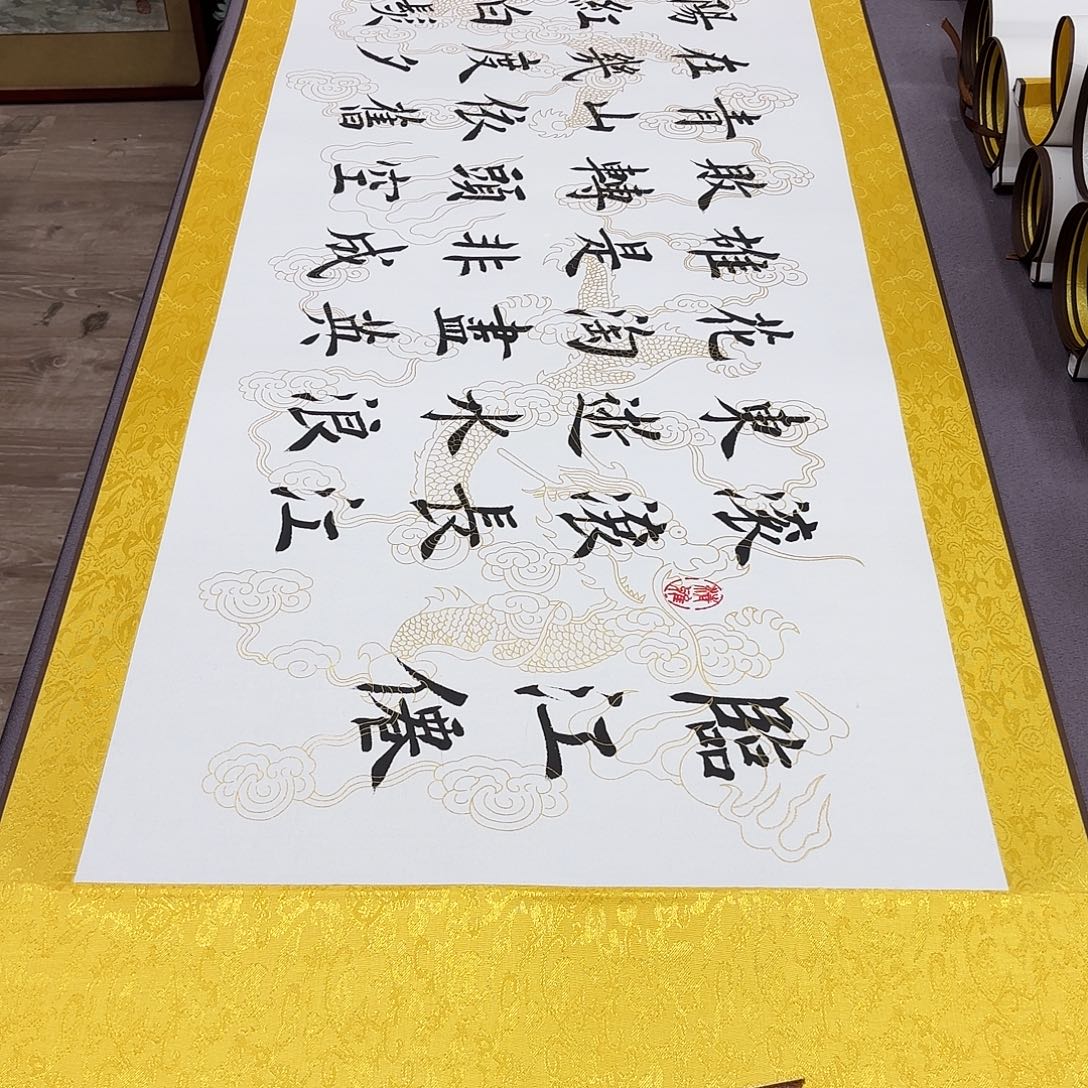 臨江僊
滾滾長江
東逝水浪
花淘盡英
雄是非成
敗轉頭空
青山依舊
在幾度夕
陽紅白髮